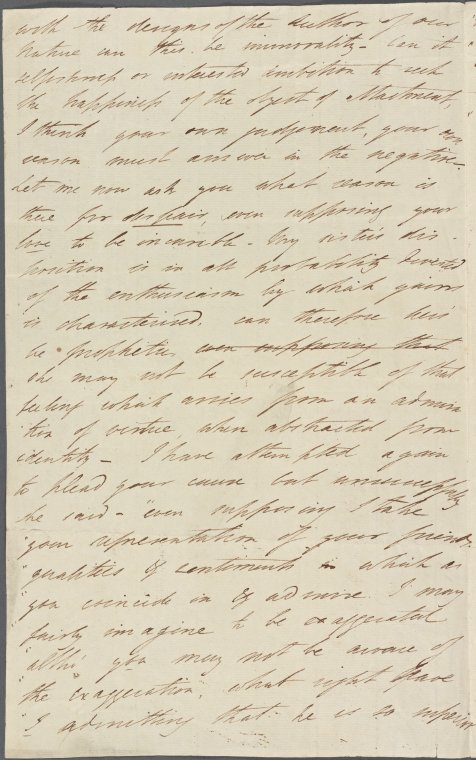 with the designs of the Author of our
nature can this be immorality - Can it
selfishness or interested ambition to seek
the happiness of the object of Attachment,
I think your own judgement, your own
reason must answer in the negative -
Let me now ask you what reason is
there for despair, even supposing your
love to be incurable - My sister's dis-
position is in all probability divested
of the enthusiasm by which yours
is characterised, can therefore hers
be prophetic, even supposing that
she may not be susceptible of that
feeling which arises from an admira
tion of virtue when abstracted from
identity - I have attempted again
to plead your cause but unsuccessfully
she said - "even supposing I take
"your representation of your friend's
"qualities & sentiments which as
"you coincide in & admire I may
fairly imagine to be exaggerated
"altho' you may not be aware of
"the exaggeration; what right have
"I admitting that he is so superior